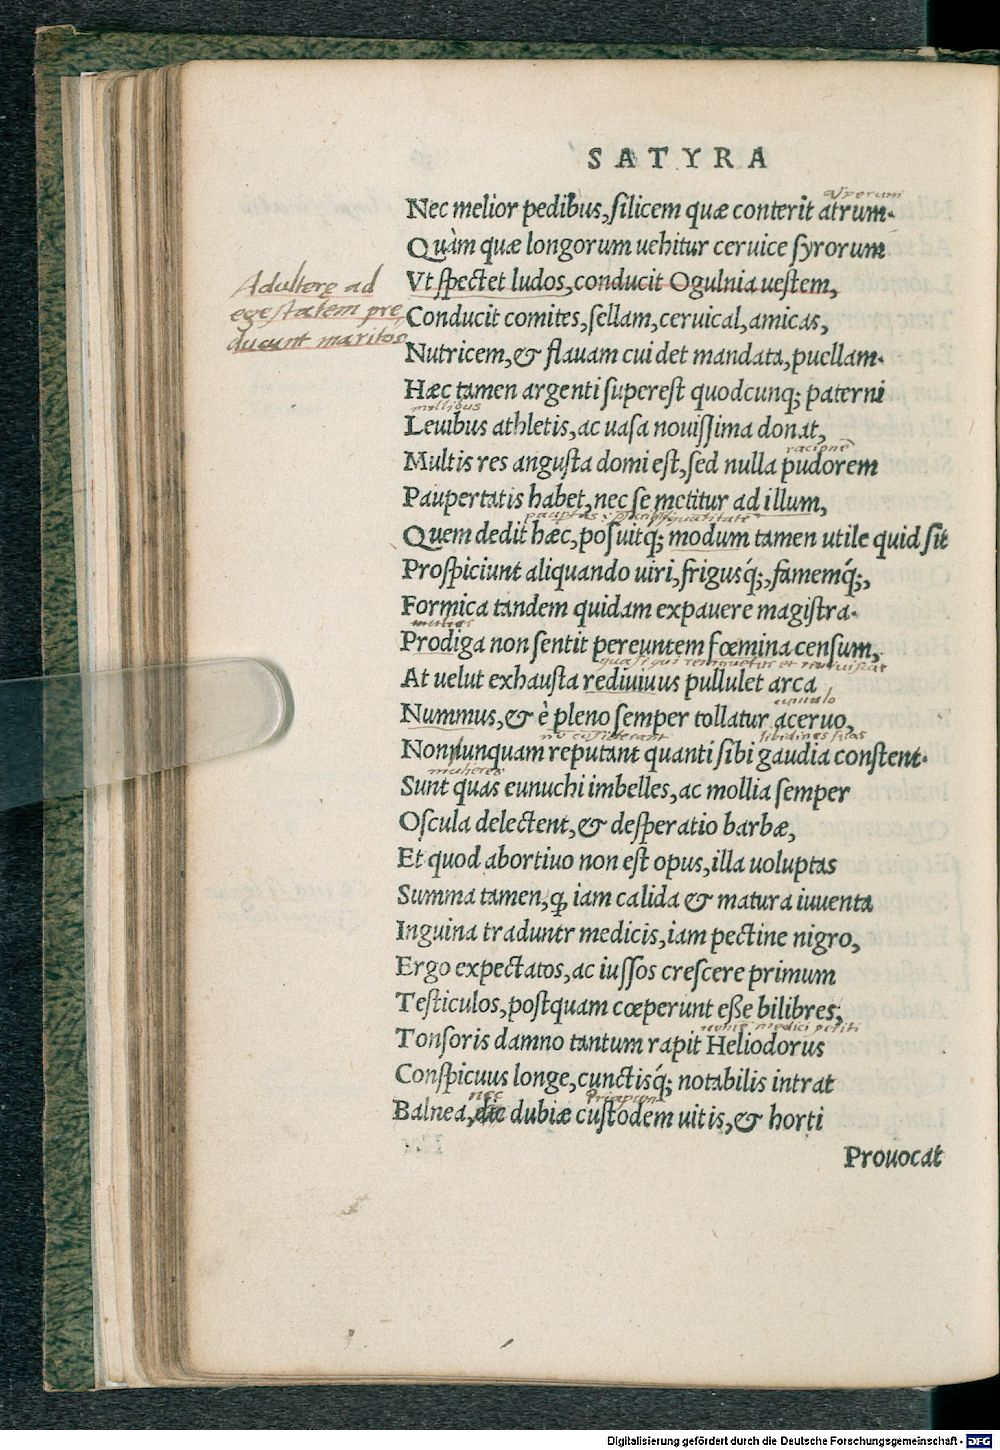 SATYRA
asperum
Nec melior pedibus, silicem quæ conterit atrum.
Quàm quæ longorum uehitur ceruice syrorum
Vt spectet ludos, conducit Ogulnia uestem,
Adultere ad
egestatem pre
ducunt maritos
Conducit comites, sellam, ceruical, amicas,
Nutricem, & flauam cui det mandata, puellam.
Hæc tamen argenti superest quodcunq; paterni
mollibus
Leuibus athletis, ac uasa nouissima donat,
Multis res angusta domi est, sed nulla pudorem
Paupertatis habet, nec se metitur ad illum,
Quem dedit hæc, posuitq; modum tamen utile quid sit
Prospiciunt aliquando uiri, frigusq́;, famemq́;,
Formica tandem quidam expauere magistra.
mulier
Prodiga non sentit pereuntem fœmina censum,
At uelut exhausta rediuiuus pullulet arca
cumulo
Nummus, & è pleno semper tollatur aceruo,
libidines suas
Nonnunquam reputant quanti sibi gaudia constent.
mulieres
Sunt quas eunuchi imbelles, ac mollia semper
Oscula delectent, & desperatio barbæ,
Et quod abortiuo non est opus, illa uoluptas
Summa tamen, ꝙ iam calida & matura iuuenta
Inguina traduntr medicis, iam pectine nigro,
Ergo expectatos, ac iussos crescere primum
Testiculos, postquam cœperunt esse bilibres,
medici periti
Tonsoris damno tantum rapit Heliodorus
Conspicuus longe, cunctisq́; notabilis intrat
nec Priapum
Balnea, dubiæ custodem uitis, & horti
Prouocat
Digitalisierung gefördert durch die Deutsche Forschungsgemeinschaft - DFG